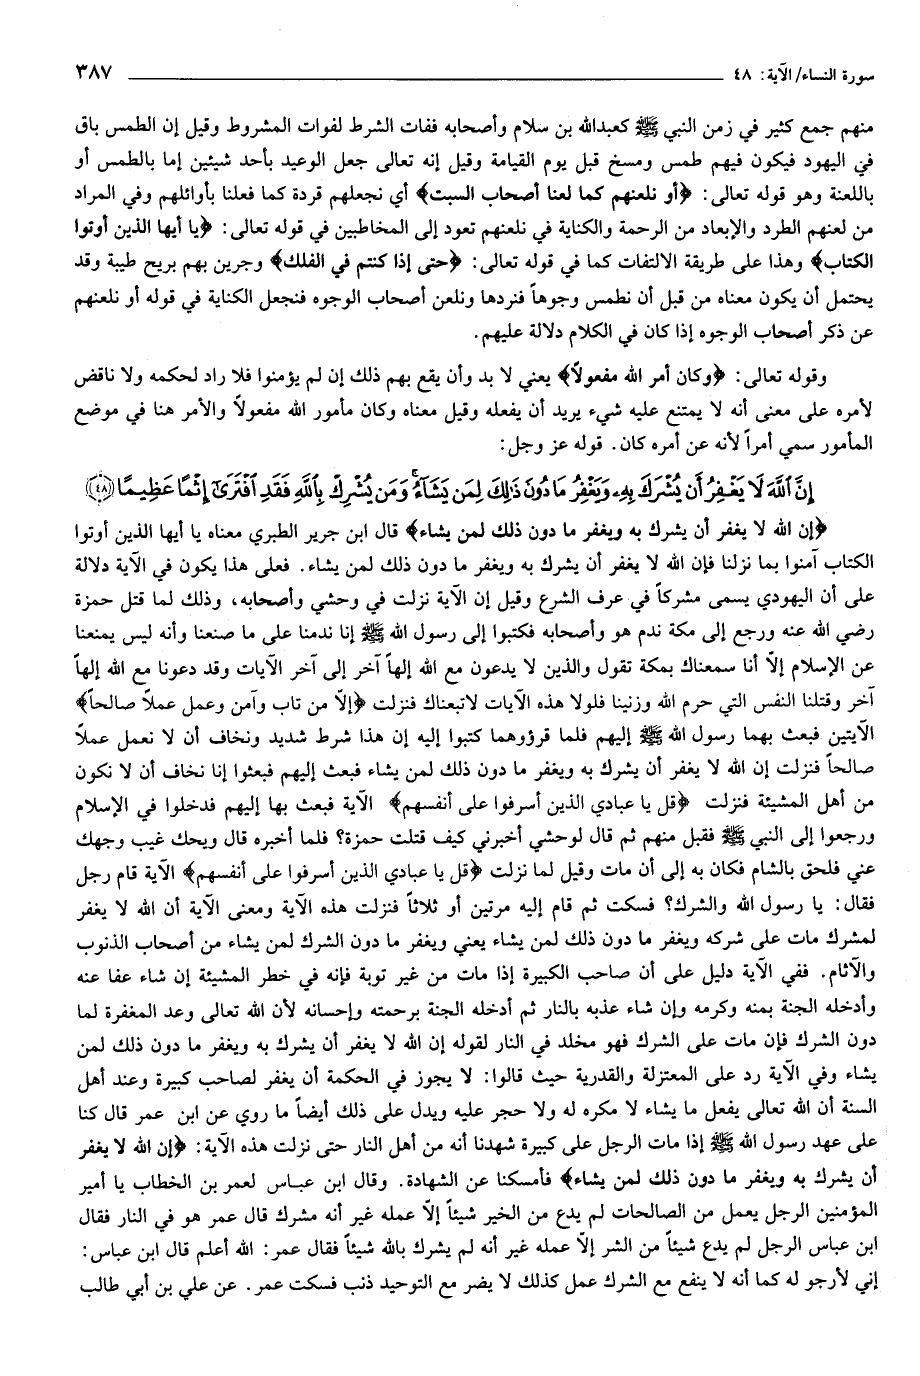 سورة النساء/ الآية: ٤٨ ٣٨٧
منهم جمع كثير في زمن النبي ﷺ كعبدالله بن سلام وأصحابه ففات الشرط لفوات المشروط وقيل إن الطمس باق
في اليهود فيكون فيهم طمس ومسخ قبل يوم القيامة وقيل إنه تعالى جعل الوعيد بأحد شيئين إما بالطمس أو
باللعنة وهو قوله تعالى: ﴿أو نلعنهم كما لعنا أصحاب السبت﴾ أي نجعلهم قردة كما فعلنا بأوائلهم وفي المراد
من لعنهم الطرد والإبعاد من الرحمة والكناية في نلعنهم تعود إلى المخاطبين في قوله تعالى: ﴿يا أيها الذين أوتوا
الكتاب﴾ وهذا على طريقة الالتفات كما في قوله تعالى: ﴿حتى إذا كنتم في الفلك﴾ وجرين بهم بريح طيبة وقد
يحتمل أن يكون معناه من قبل أن نطمس وجوهاً فنردها ونلعن أصحاب الوجوه فنجعل الكناية في قوله أو نلعنهم
عن ذكر أصحاب الوجوه إذا كان في الكلام دلالة عليهم.
وقوله تعالى: ﴿وكان أمر الله مفعولاً﴾ يعني لا بد وأن يقع بهم ذلك إن لم يؤمنوا فلا راد لحكمه ولا ناقض
لأمره على معنى أنه لا يمتنع عليه شيء يريد أن يفعله وقيل معناه وكان مأمور الله مفعولاً والأمر هنا في موضع
المأمور سمي أمراً لأنه عن أمره كان. قوله عز وجل:
إِنَّ ٱللَّهَ لَا يَغْفِرُ أَن يُشْرَكَ بِهِۦ وَيَغْفِرُ مَا دُونَ ذَٰلِكَ لِمَن يَشَآءُ ۚ وَمَن يُشْرِكْ بِٱللَّهِ فَقَدِ ٱفْتَرَىٰٓ إِثْمًا عَظِيمًا ﴿٤٨﴾
﴿إن الله لا يغفر أن يشرك به ويغفر ما دون ذلك لمن يشاء﴾ قال ابن جرير الطبري معناه يا أيها الذين أوتوا
الكتاب آمنوا بما نزلنا فإن الله لا يغفر أن يشرك به ويغفر ما دون ذلك لمن يشاء. فعلى هذا يكون في الآية دلالة
على أن اليهودي يسمى مشركاً في عرف الشرع وقيل إن الآية نزلت في وحشي وأصحابه، وذلك لما قتل حمزة
رضي الله عنه ورجع إلى مكة ندم هو وأصحابه فكتبوا إلى رسول الله ﷺ إنا ندمنا على ما صنعنا وأنه ليس يمنعنا
عن الإسلام إلاّ أنا سمعناك بمكة تقول والذين لا يدعون مع الله إلهاً آخر إلى آخر الآيات وقد دعونا مع الله إلهاً
آخر وقتلنا النفس التي حرم الله وزنينا فلولا هذه الآيات لاتبعناك فنزلت ﴿إلاّ من تاب وآمن وعمل عملاً صالحاً﴾
الآيتين فبعث بهما رسول الله ﷺ إليهم فلما قرؤوهما كتبوا إليه إن هذا شرط شديد ونخاف أن لا نعمل عملاً
صالحاً فنزلت إن الله لا يغفر أن يشرك به ويغفر ما دون ذلك لمن يشاء فبعث إليهم فبعثوا إنا نخاف أن لا نكون
من أهل المشيئة فنزلت ﴿قل يا عبادي الذين أسرفوا على أنفسهم﴾ الآية فبعث بها إليهم فدخلوا في الإسلام
ورجعوا إلى النبي ﷺ فقبل منهم ثم قال لوحشي أخبرني كيف قتلت حمزة؟ فلما أخبره قال ويحك غيب وجهك
عني فلحق بالشام فكان به إلى أن مات وقيل لما نزلت ﴿قل يا عبادي الذين أسرفوا على أنفسهم﴾ الآية قام رجل
فقال: يا رسول الله والشرك؟ فسكت ثم قام إليه مرتين أو ثلاثاً فنزلت هذه الآية ومعنى الآية أن الله لا يغفر
لمشرك مات على شركه ويغفر ما دون ذلك لمن يشاء يعني ويغفر ما دون الشرك لمن يشاء من أصحاب الذنوب
والآثام. ففي الآية دليل على أن صاحب الكبيرة إذا مات من غير توبة فإنه في خطر المشيئة إن شاء عفا عنه
وأدخله الجنة بمنه وكرمه وإن شاء عذبه بالنار ثم أدخله الجنة برحمته وإحسانه لأن الله تعالى وعد المغفرة لما
دون الشرك فإن مات على الشرك فهو مخلد في النار لقوله إن الله لا يغفر أن يشرك به ويغفر ما دون ذلك لمن
يشاء وفي الآية رد على المعتزلة والقدرية حيث قالوا: لا يجوز في الحكمة أن يغفر لصاحب كبيرة وعند أهل
السنة أن الله تعالى يفعل ما يشاء لا مكره له ولا حجر عليه ويدل على ذلك أيضاً ما روي عن ابن عمر قال كنا
على عهد رسول الله ﷺ إذا مات الرجل على كبيرة شهدنا أنه من أهل النار حتى نزلت هذه الآية: ﴿إن الله لا يغفر
أن يشرك به ويغفر ما دون ذلك لمن يشاء﴾ فأمسكنا عن الشهادة. وقال ابن عباس لعمر بن الخطاب يا أمير
المؤمنين الرجل يعمل من الصالحات لم يدع من الخير شيئاً إلاّ عمله غير أنه مشرك قال عمر هو في النار فقال
ابن عباس الرجل لم يدع شيئاً من الشر إلاّ عمله غير أنه لم يشرك بالله شيئاً فقال عمر: الله أعلم قال ابن عباس:
إني لأرجو له كما أنه لا ينفع مع الشرك عمل كذلك لا يضر مع التوحيد ذنب فسكت عمر. عن علي بن أبي طالب